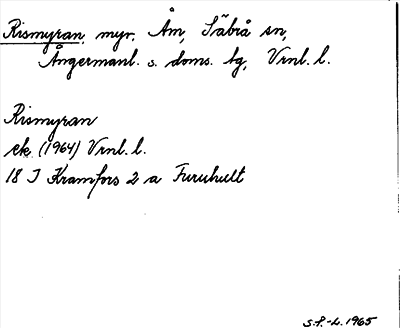 Rismyran, myr, Åm, Säbrå sn,
Ångermanl. s. doms. tg, Vrnl. l.
Rismyran
ek (1964) Vrnl. l.
18 J Kramfors 2 a Furuhult
S.F.-L. 1965